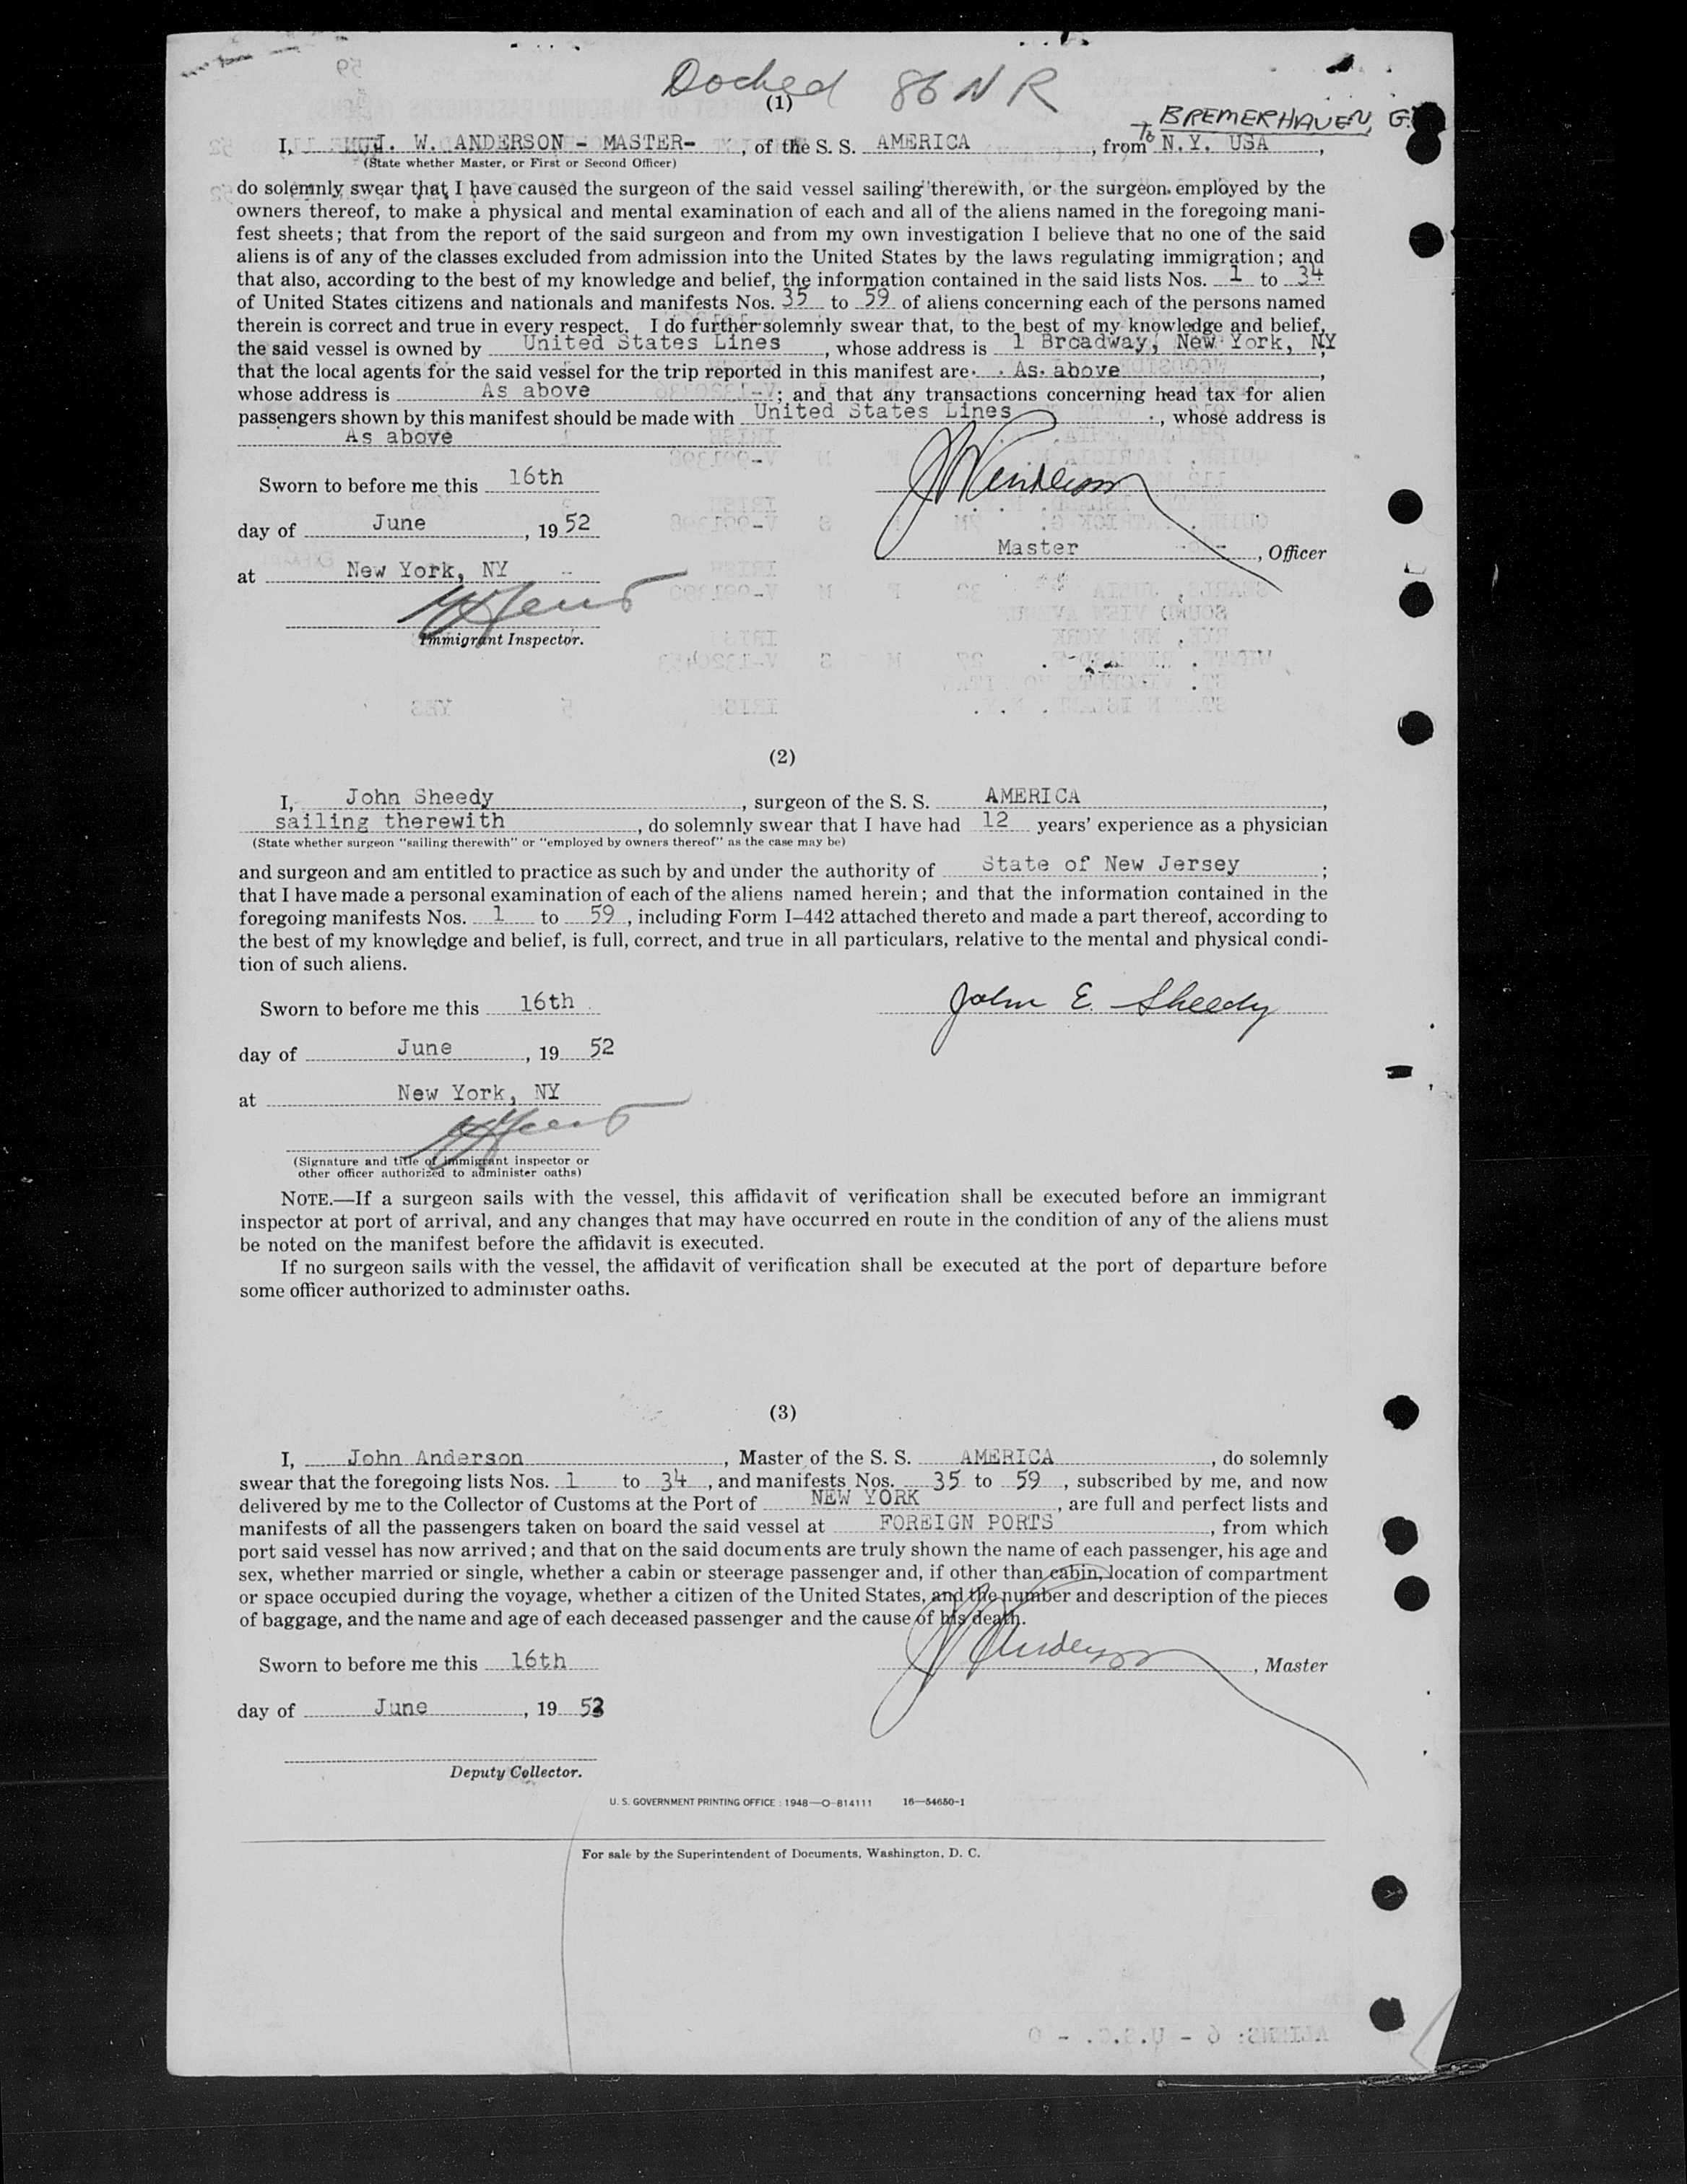 Docked 86 N R
(1)
BREMERHAVEN, G.
I, J. W. ANDERSON - MASTER-, of the S. S. AMERICA, from To N.Y. USA,
(State whether Master, or First or Second Officer)
do solemnly swear that I have caused the surgeon of the said vessel sailing therewith, or the surgeon employed by the
owners thereof, to make a physical and mental examination of each and all of the aliens named in the foregoing mani-
fest sheets; that from the report of the said surgeon and from my own investigation I believe that no one of the said
aliens is of any of the classes excluded from admission into the United States by the laws regulating immigration; and
that also, according to the best of my knowledge and belief, the information contained in the said lists Nos. 1 to 34
of United States citizens and nationals and manifests Nos. 35 to 59 of aliens concerning each of the persons named
therein is correct and true in every respect. I do further solemnly swear that, to the best of my knowledge and belief,
the said vessel is owned by United States Lines, whose address is 1 Broadway, New York, NY;
that the local agents for the said vessel for the trip reported in this manifest are As above,
whose address is As above; and that any transactions concerning head tax for alien
passengers shown by this manifest should be made with United States Lines, whose address is
As above
Sworn to before me this 16th
day of June, 19 52
Master, Officer
at New York, NY
Immigrant Inspector.
(2)
I, John Sheedy, surgeon of the S. S. AMERICA,
sailing therewith, do solemnly swear that I have had 12 years' experience as a physician
(State whether surgeon "sailing therewith" or "employed by owners thereof" as the case may be)
and surgeon and am entitled to practice as such by and under the authority of State of New Jersey;
that I have made a personal examination of each of the aliens named herein; and that the information contained in the
foregoing manifests Nos. 1 to 59, including Form I-442 attached thereto and made a part thereof, according to
the best of my knowledge and belief, is full, correct, and true in all particulars, relative to the mental and physical condi-
tion of such aliens.
Sworn to before me this 16th
John E. Sheedy
day of June, 19 52
at New York, NY
(Signature and title of immigrant inspector or
other officer authorized to administer oaths)
NOTE.—If a surgeon sails with the vessel, this affidavit of verification shall be executed before an immigrant
inspector at port of arrival, and any changes that may have occurred en route in the condition of any of the aliens must
be noted on the manifest before the affidavit is executed.
If no surgeon sails with the vessel, the affidavit of verification shall be executed at the port of departure before
some officer authorized to administer oaths.
(3)
I, John Anderson, Master of the S. S. AMERICA, do solemnly
swear that the foregoing lists Nos. 1 to 34, and manifests Nos. 35 to 59, subscribed by me, and now
delivered by me to the Collector of Customs at the Port of NEW YORK, are full and perfect lists and
manifests of all the passengers taken on board the said vessel at FOREIGN PORTS, from which
port said vessel has now arrived; and that on the said documents are truly shown the name of each passenger, his age and
sex, whether married or single, whether a cabin or steerage passenger and, if other than cabin, location of compartment
or space occupied during the voyage, whether a citizen of the United States, and the number and description of the pieces
of baggage, and the name and age of each deceased passenger and the cause of his death.
JW Anderson
Sworn to before me this 16th
, Master
day of June, 19
Deputy Collector.
U. S. GOVERNMENT PRINTING OFFICE : 1948—O-814111 16—54650-1
For sale by the Superintendent of Documents, Washington, D. C.